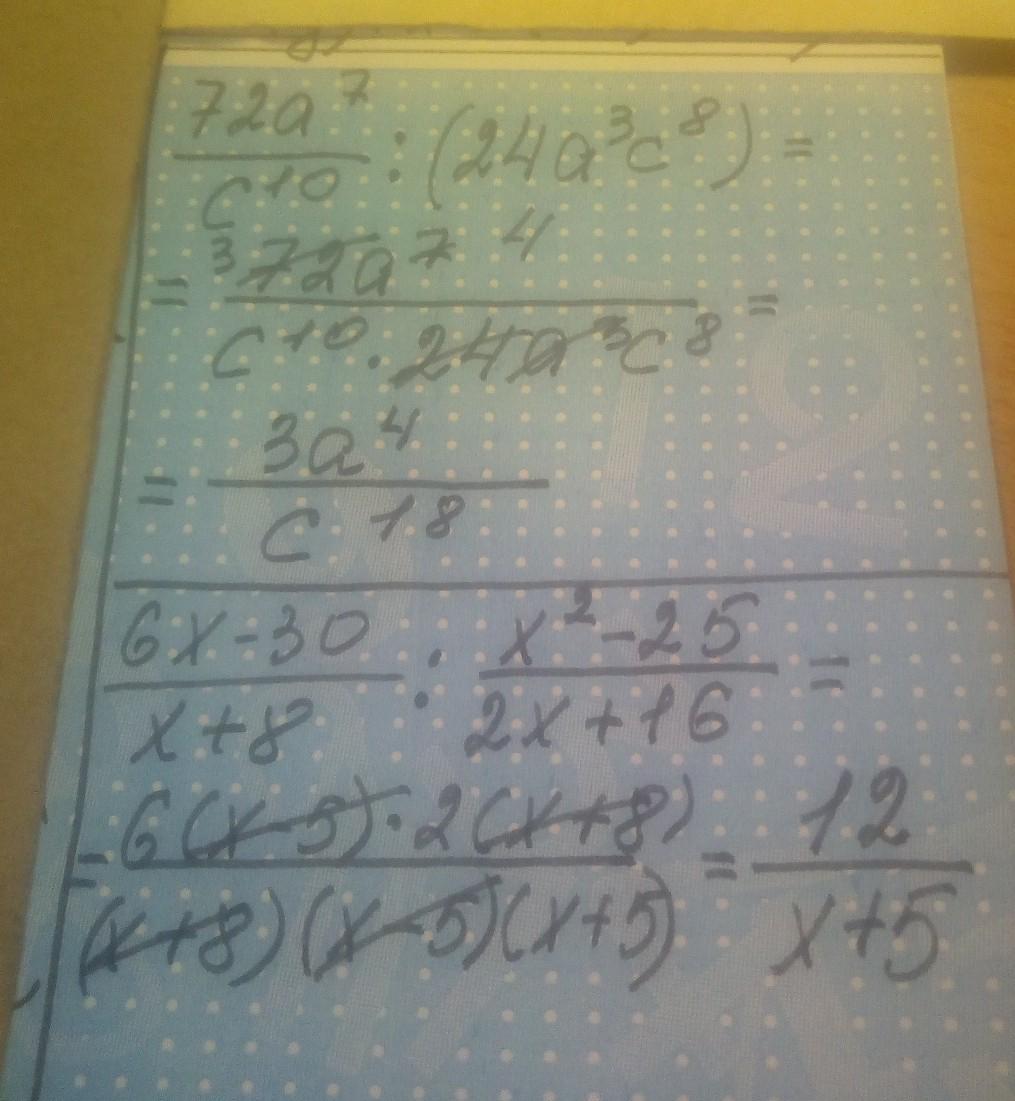 72a⁷/c¹⁰ : (24a³c⁸) =
= ³72a⁷ ⁴/c¹⁰·24a³c⁸ =
= 3a⁴/c¹⁸
6x-30/x+8 : x²-25/2x+16 =
= 6(x-5)·2(x+8)/(x+8)(x-5)(x+5) = 12/x+5